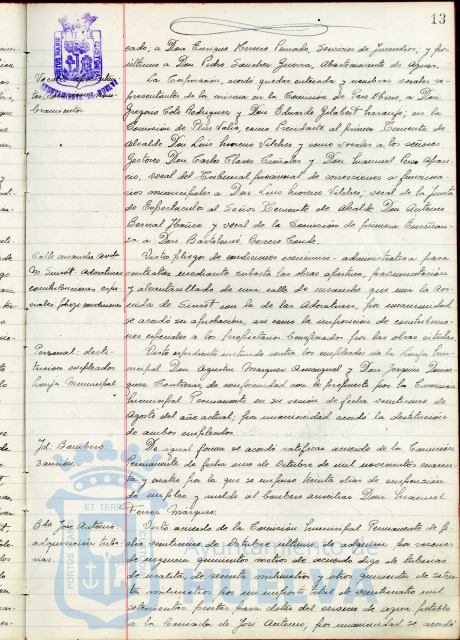 13
cado; a Don Enrique Herrero Penado, Servicios de Incendios, y por
último a Don Pedro Sanchez Guerra, Abastecimiento de Aguas.
La Corporación, acordó quedar enterada y nombrar vocales re-
presentantes de la misma en la Comision de Pro Obrero, a Don
Gregorio Rodriguez y Don Eduardo Gelabert Naranjo; en la
Comisión de Plus Valía, como Presidente al primer Teniente de
Alcalde Don Luis Moreno Vilches y como vocales a los señores
Gestores Don Carlos Cañales y Don Manuel Vera Apari-
cio, vocal del Tribunal provincial de a funciona-
rios municipales a Don Luis Moreno Vilches; vocal de la Junta
de Espectáculos al Señor Teniente de Alcalde Don Antonio
Bernal Ibáñez y vocal de la Comisión de primera Enseñan-
za a Don Bartolomé Conde.
Calle ensanche Avda
M. Siurot. Adoratrices
contribuciones espe-
ciales pliego condiciones
Visto pliego de condiciones económico-administrativas para
contratar mediante subasta las obras apertura, pavimentación
y alcantarillado de una calle de ensanche que una la Ave-
nida de Siurot con la de las Adoratrices, por unanimidad
se acordó su aprobación, así como la imposición de contribucio-
nes especiales a los propietarios beneficiados por las obras citadas.
Personal: desti-
tucion empleados
Lonja Municipal
Visto expediente instruido contra los empleados de la Lonja Mu-
nicipal Don Agustin Marquez y Don Joaquin Domin-
guez Contreras, de conformidad con lo propuesto por la Comisión
Municipal Permanente en su sesión de fecha veintiuno de
Agosto del año actual; por unanimidad acordó la destitución
de ambos empleados.
Id. Bombero
Sanción.
De igual forma se acordó ratificar acuerdo de la Comisión
Permanente de fecha uno de Octubre de mil novecientos cuaren-
ta y cuatro por la que se impuso treinta días de suspensión
de empleo y sueldo al bombero auxiliar Don Manuel
Marquez.
Bda José Antonio.
adquisición tube-
rias.
Visto acuerdo de la Comisión Municipal Permanente de fe-
cha veintiuno de Octubre último de adquirir por razones
de urgencia quinientos metros de acuerdo digo de tuberias
de uralita, de sesenta milimetros y otros quinientos de
milimetros por un importe total de veinticuatro mil
setecientas pesetas, para dotar del servicio de agua potable
a la Barriada de José Antonio, por unanimidad se acordó
Ayuntamiento de